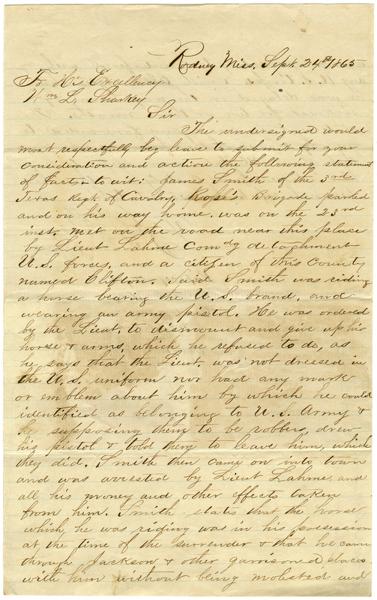 Rodney Miss, Sept. 24th 1865
To His Excellency
Wm L. Sharkey
Sir
The undersigned would
most respectfully beg leave to submit for your
consideration and action the following statement
of facts: to wit: James Smith of the 3rd
Texas Regt of Cavalry, Ross's Brigade paroled
and on his way home, was on the 23rd
inst. met on the road near this place
by Lieut Lahme Comdg detachment
U.S. forces, and a citizen of this County
named Clifton. Said Smith was riding
a horse bearing the U.S. brand, and
wearing an army pistol. He was ordered
by the Lieut, to dismount and give up his
horse & arms, which he refused to do, as
he says that the Lieut. was not dressed in
the U.S. uniform nor had any mark
or emblem about him by which he could
identified as belonging to U.S. Army &
he supposing them to be robbers, drew
his pistol & told them to leave him, which
they did. Smith then came on into town
and was arrested by Lieut Lahme, and
all his money and other effects taken
from him. Smith states that the horse
which he was riding was in his possession
at the time of the surrender & that he came
through Jackson & other garrisoned places
with him without being molested and